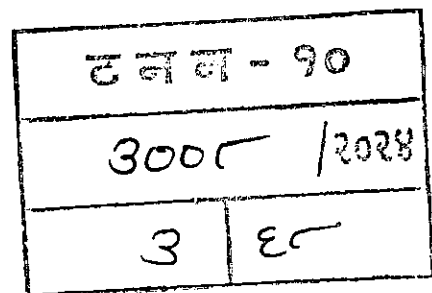 ट न न - १०
३००८ /२०२४
३ ६८